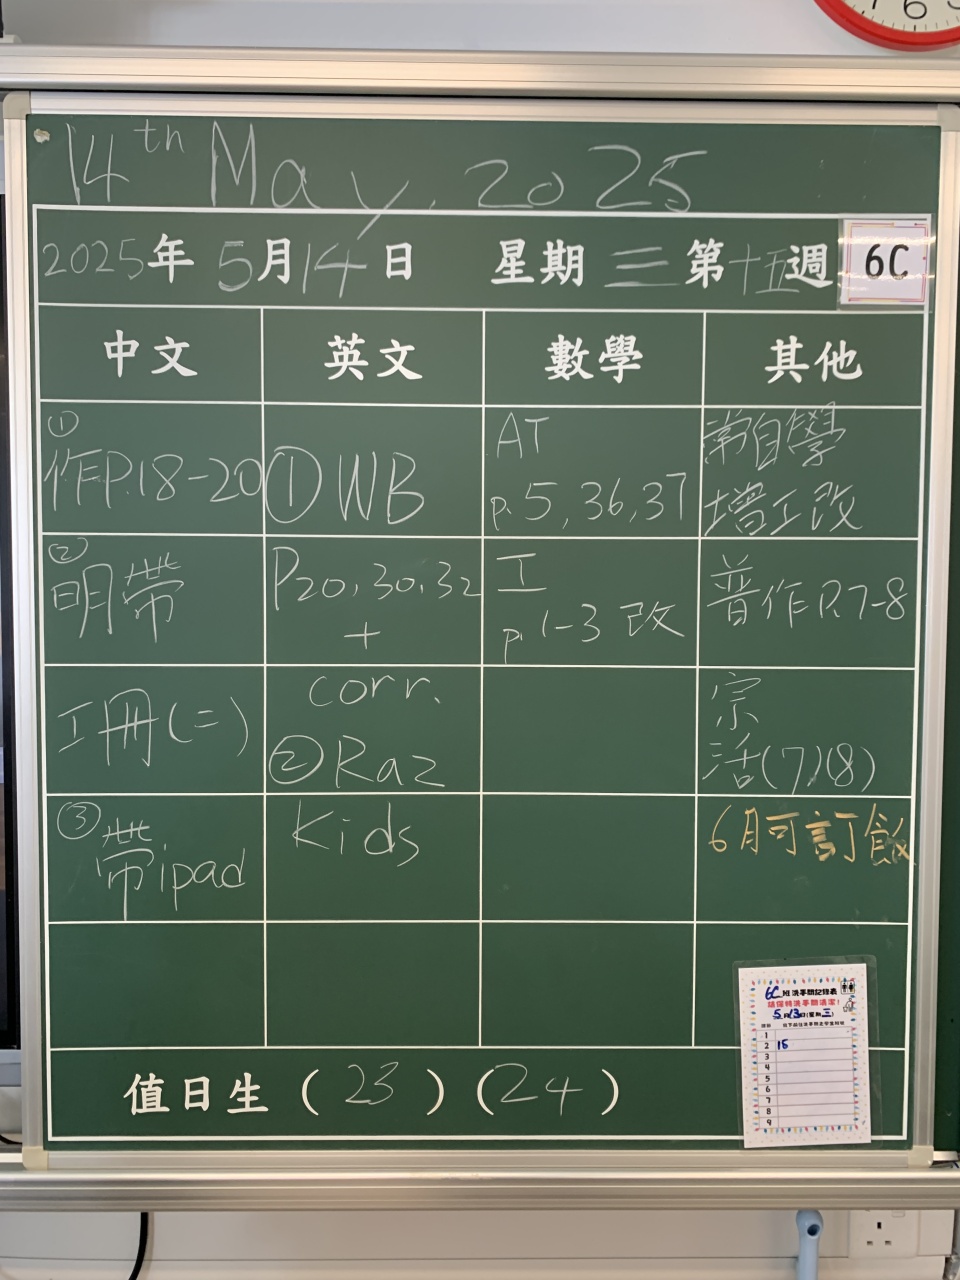 14th May, 2025
2025年 5月14日 星期三第十五週
6C
中文 英文 數學 其他
①
作P.18-20
②
明帶
工冊(二)
③
帶ipad
①WB
P20,30,32
+
corr.
②Raz
Kids
AT
p.5,36,37
工
p.1-3 改
常自學
增工改
普作P.7-8
宗
活(7)(8)
6月可訂飯
值日生 (23) (24)
6C班洗手間記錄表
請保持洗手間清潔!
5月13日(星期三)
1
2 15
3
4
5
6
7
8
9
6